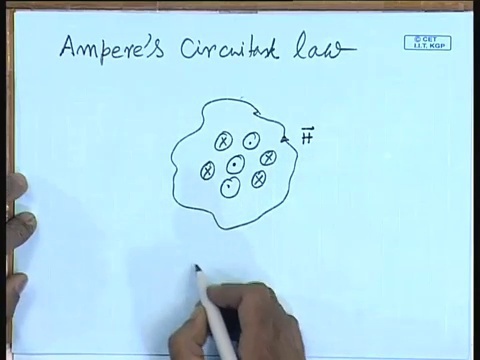 Ampere's Circuital law
© CET
I.I.T. KGP
H